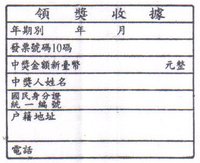 領獎收據
年期別 年 月
發票號碼10碼
中獎金額新臺幣 元整
中獎人姓名
國民身分證
統一編號
戶籍地址
電話